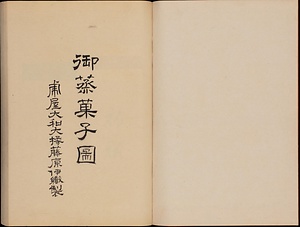 御蒸菓子圖
虎屋大和大掾藤原伊織製